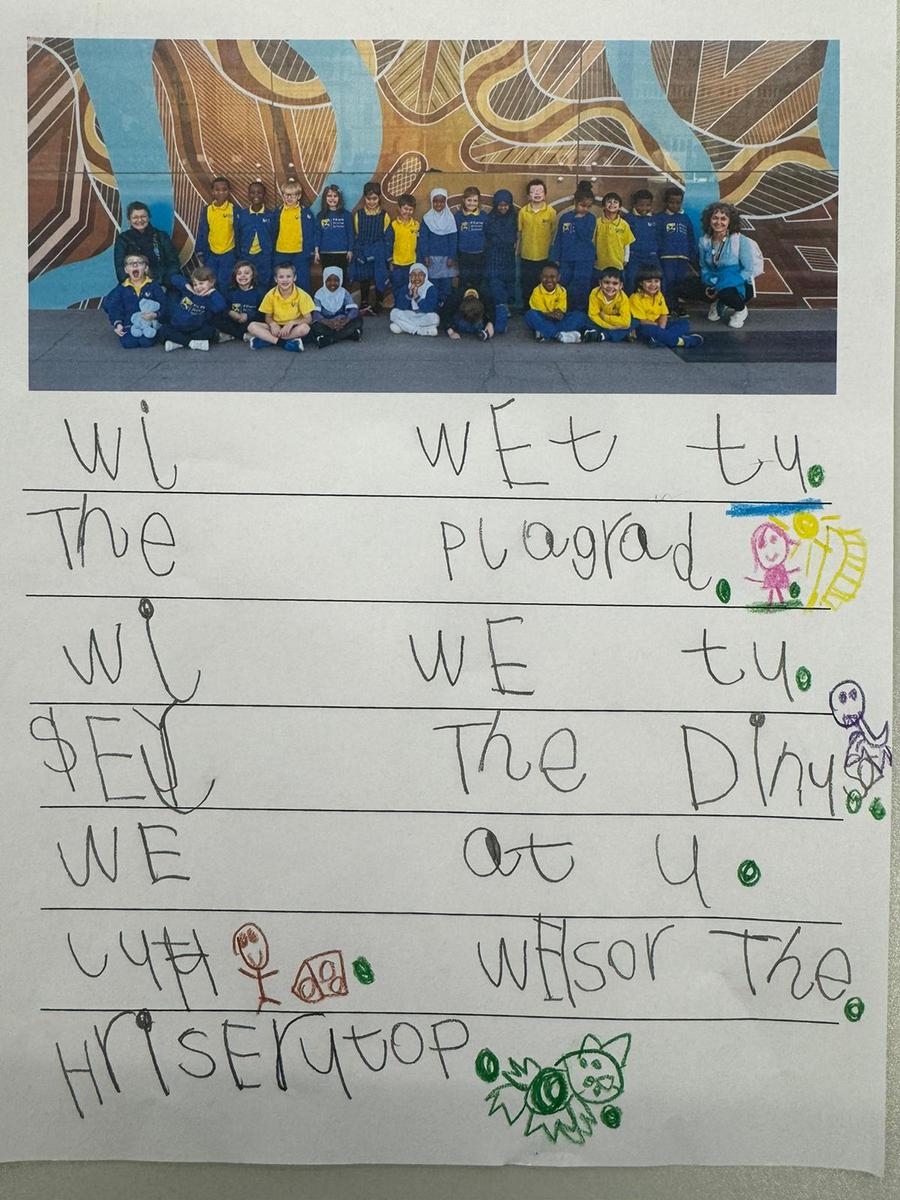 wi wEt ty.
The plagrad.
wi wE ty.
SEy The Diny.
WE at y.
LytH wElsor The.
HriSErytop